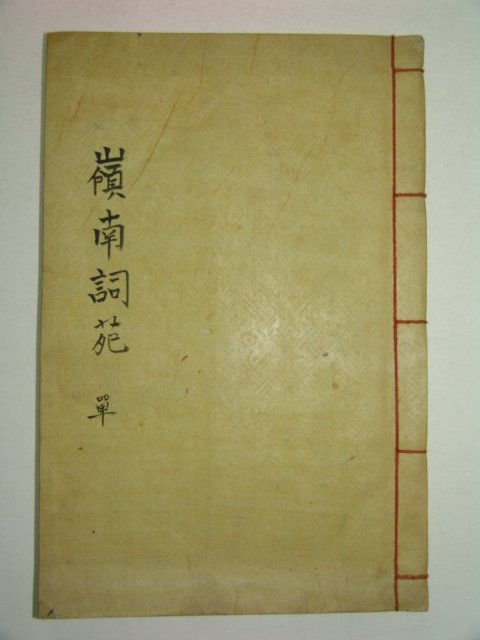 嶺南詞苑 單